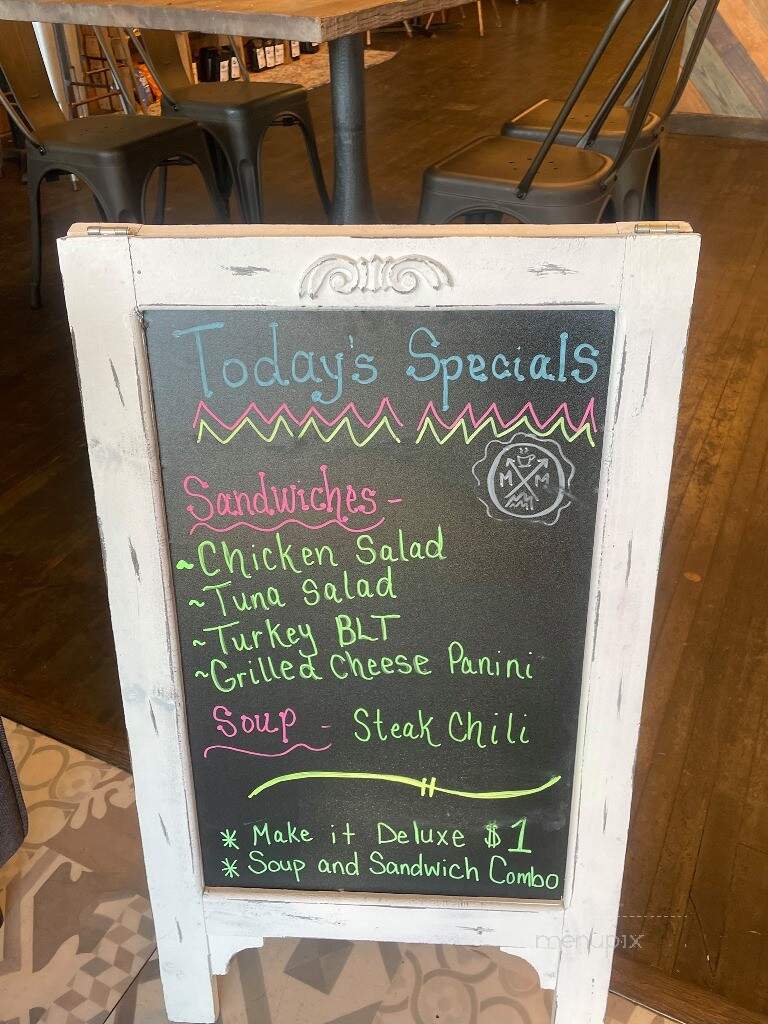 Today's Specials
M M
Sandwiches -
~Chicken Salad
~Tuna Salad
~Turkey BLT
~Grilled Cheese Panini
Soup - Steak Chili
* Make it Deluxe $1
* Soup and Sandwich Combo
menupix